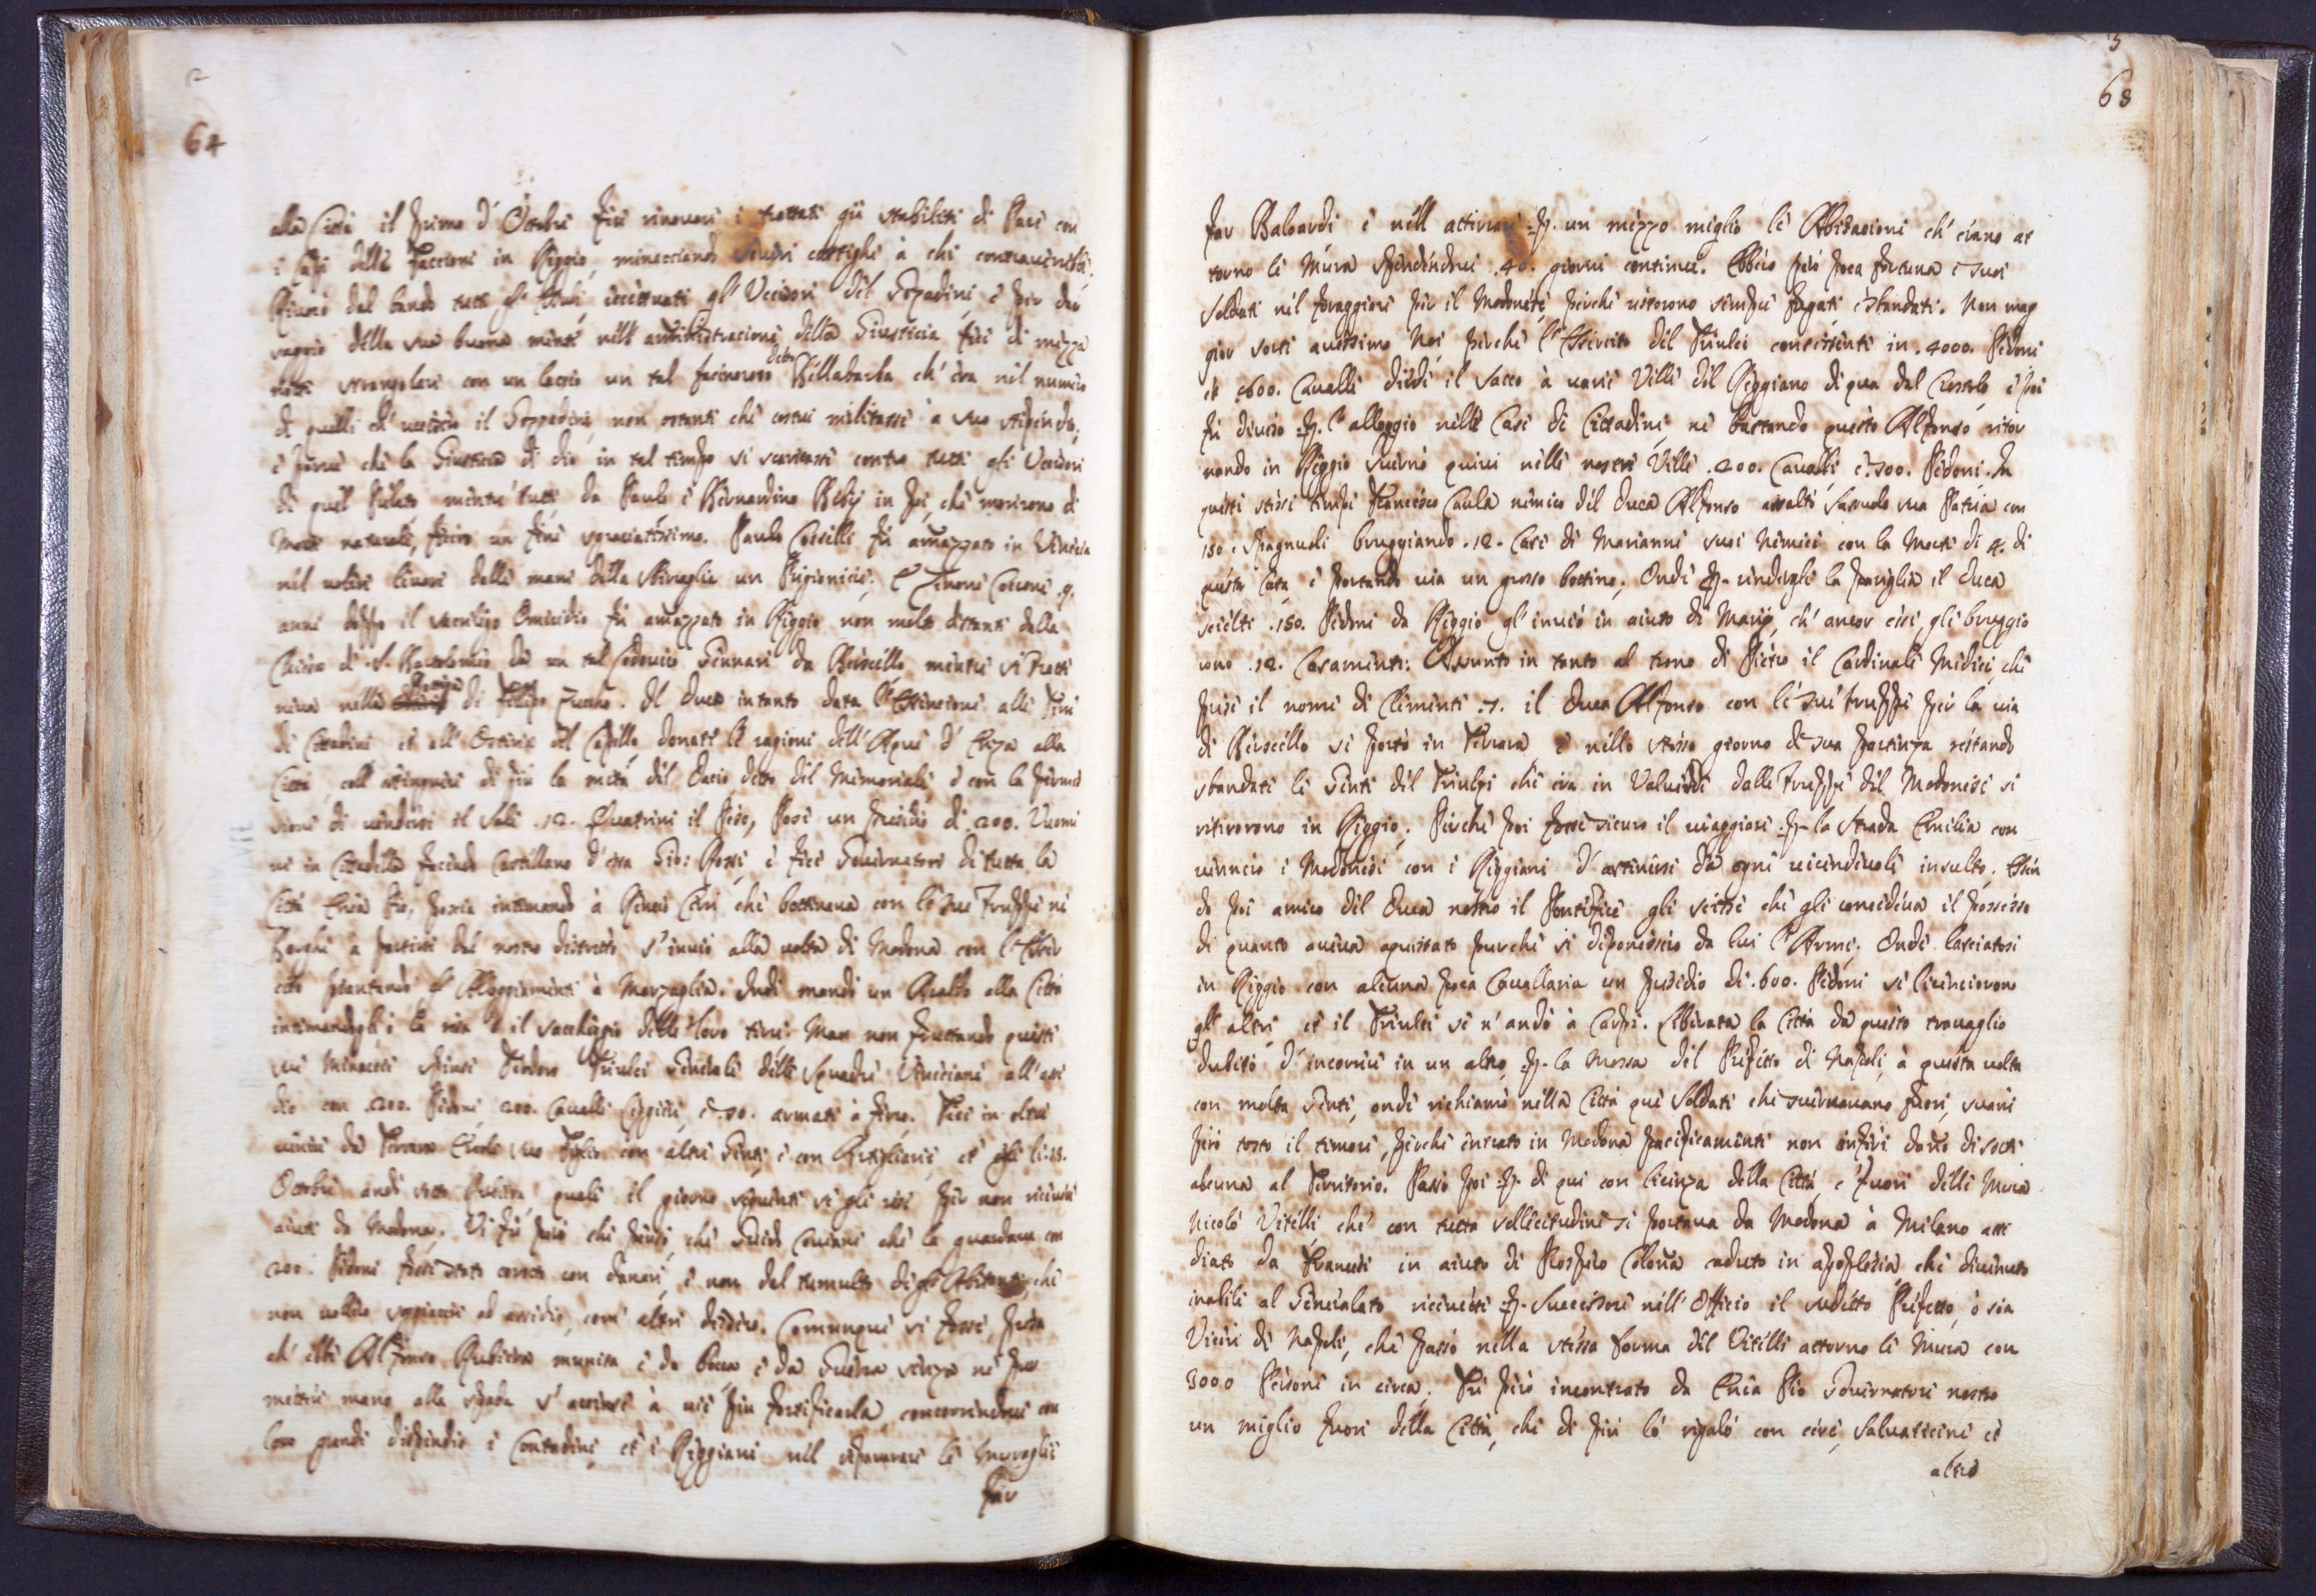 2
64
alla Città il primo d' Ottobre fece rinovare i trattati già stabiliti di Pace con
i Capi delle Fazzioni in Reggio, minacciando severi castighi à chi contravenisse.
Rivocò dal bando tutti gl' Esuli eccettuati gl' Uccisori del Gozadini, e per dar
saggio della sua buona mente nell' amministracione della Giustizia fece di mezza
notte strangolare con un laccio un tal facinoroso detto Bellabarba ch' era nel numero
di quelli ch' uccisero il Gozzadini, non ostante che costui militasse à suo stipendio,
e parve che la Giustizia di Dio in tal tempo si scaricasse contro tutti gli Uccisori
di quel Prelato, mentre tutti da Paulo e Bernardino Bebij in poi, che morirono di
Morte naturale, fecero un fine sgraciatissimo. Paulo Coccelli fu amazzato in Venecia
nel volersi livare dalle mani della Sbiraglia un Prigioniere; e Zenone Cocconi 9.
anni doppo il sacrilego Omicidio fu amazzato in Reggio non molto distante dalla
Chiesa di S. Bartolomeo da un tal Lodovico Gennari da Bersello mentre si tratti
neva nella di Filippo Zucchi. Il Duca intanto data l'esencione alle Fini
di Cittadini et all' Osterie del Capello donate le ragioni dell' Aque d' Enza alla
Città, coll' estinguere di più la metà del Dacio detto del Memoriale, e con la permes
sione di vendersi il Sale .12. Quatrini il Peso, Posi un presidio di 200. Uomi
ni in Cittadella facendo Castellano d' essa Gio: Rossi, e fece Governatore di tutta la
Città Enea Pio, poscia intimando à Renzo Ceri che bottinava con le sue Truppe ne
Borghi à partirsi dal nostro distretto s' inviò alla volta di Modona con l'Eser
cito piantando gl' Alloggiamenti à Marzaglia. Indi mandò un Araldo alla Città
intimandogli la resa ò il saccheggio delle loro terre. Man non fruttando queste
sue Minaccie spinse Teodoro Triulci Generale delle Squadre Veneciane all' asse
dio con 200. Pedoni, 200. Cavalli Leggieri, e 50. armati à ferro. Fece in oltre
venire da Ferrara Ercole suo Figlio con altre Genti, e con Artiglierie, et gli li 15.
Ottobre andò sotto Rubiera, quale il giorno seguente se gli rese per non ricevere
aiuti da Modona. Vi fu però chi pensò che Guido Coviani che la guardava con
200. Pedoni fosse stato corotto con danari, e non dal tumulto degli Abitanti, che
non vollero soggiacere ad assidio, com' altri dissero. Comunque si fosse, presa
ch' ebbe Alfonso Rubiera munita e da Rocca e da Guerra senza ne pur
mettere mano alla spada s' accinse à vie più fortificarla, concorrendovi con
loro grande dispendio i Contadini et i Reggiani nel riparare le Muraglie
far
3
68
far Baloardi e nell' atterrare p. un mezzo miglio le Abitacioni ch' erano at
torno le Mura spendendovi .40. giorni continui. Ebbero però poca fortuna e suoi
Soldati nel foraggiare per il Modonese, perche restorono sempre fugati e sbandati. Non mag
gior sorte avessimo Noi perche l'Esercito del Triulci consistente in .4000. Pedoni
et 1600. Cavalli diede il sacco à varie Ville del Reggiano di qua dal Crostolo e poi
fu diviso p. l'alloggio nelle Case di Cittadini ne bastando questo Alfonso ritor
nando in Reggio svernò quivi nelle nostre Ville .200. Cavalli, e 500. Pedoni. In
questi stessi tempi Francesco Caula nemico del Duca Alfonso assaltò Sassuolo sua Patria con
150. Spagnuoli bruggiando .12. Case di Marianni suoi Nemici con la Morte di 4. di
questa Casa, e portando via un grosso bottino. Onde p. rendergli la pariglia il Duca
scielti .150. Pedoni da Reggio gl' inviò in aiuto di Marij, ch' ancor essi, gli bruggio
rono .12. Casamenti. Assunto in tanto al trono di Pietro il Cardinale Medici, che
prese il nome di Clemente 7. il Duca Alfonso con le sue truppe per la via
di Berscello si portò in Ferrara e nello stesso giorno di sua partenza restando
sbandate le Genti del Triulzi che era in Valverde dalle Truppe del Modonese si
ritirorono in Reggio. Perche poi fosse sicuro il viaggiare p. la Strada Emilia con
vennero i Modonesi con i Reggiani d' astenersi da ogni vicendevole insulto. Essen
do poi amico del Duca nostro il Pontefice gli scrisse che gli concedeva il possesso
di quanto aveva aquistato purche si deponessero da lui l'Armi. Onde lasciatosi
in Reggio con alcuna poca Cavallaria un presidio di .600. Pedoni si licenciorono
gl' altri et il Triulci se n' andò à Carpi. Liberata la Città da questo travaglio
dubitò d' incorrere in un altro p. la mossa del Prefetto di Napoli, à questa volta
con molta Gente, onde richiamò nella Città que Soldati che svernavano fuori, svanì
però tosto il timore, perche entrato in Modona pacificamente non inferì danno di sorte
alcuna al Territorio. Passò poi p. di qui con licenza della Città, e fuori delle Mura
Nicolò Vitelli che con tutta sollecitudine si portava da Modona à Milano asse
diato da Francesi in aiuto di Prospero Colona caduto in apoplesia che divenuto
inabile al Generalato ricevette p. Successore nell' Officio il sudetto Prefetto, ò sia
Vicerè di Napoli, che passò nella stessa forma del Vitelli attorno le Mura con
3000 Persone in circa. Fu però incontrato da Enea Pio Governatore nostro
un miglio fuori della Città, che di più lò regalò con cere, Salvaticine et
altro